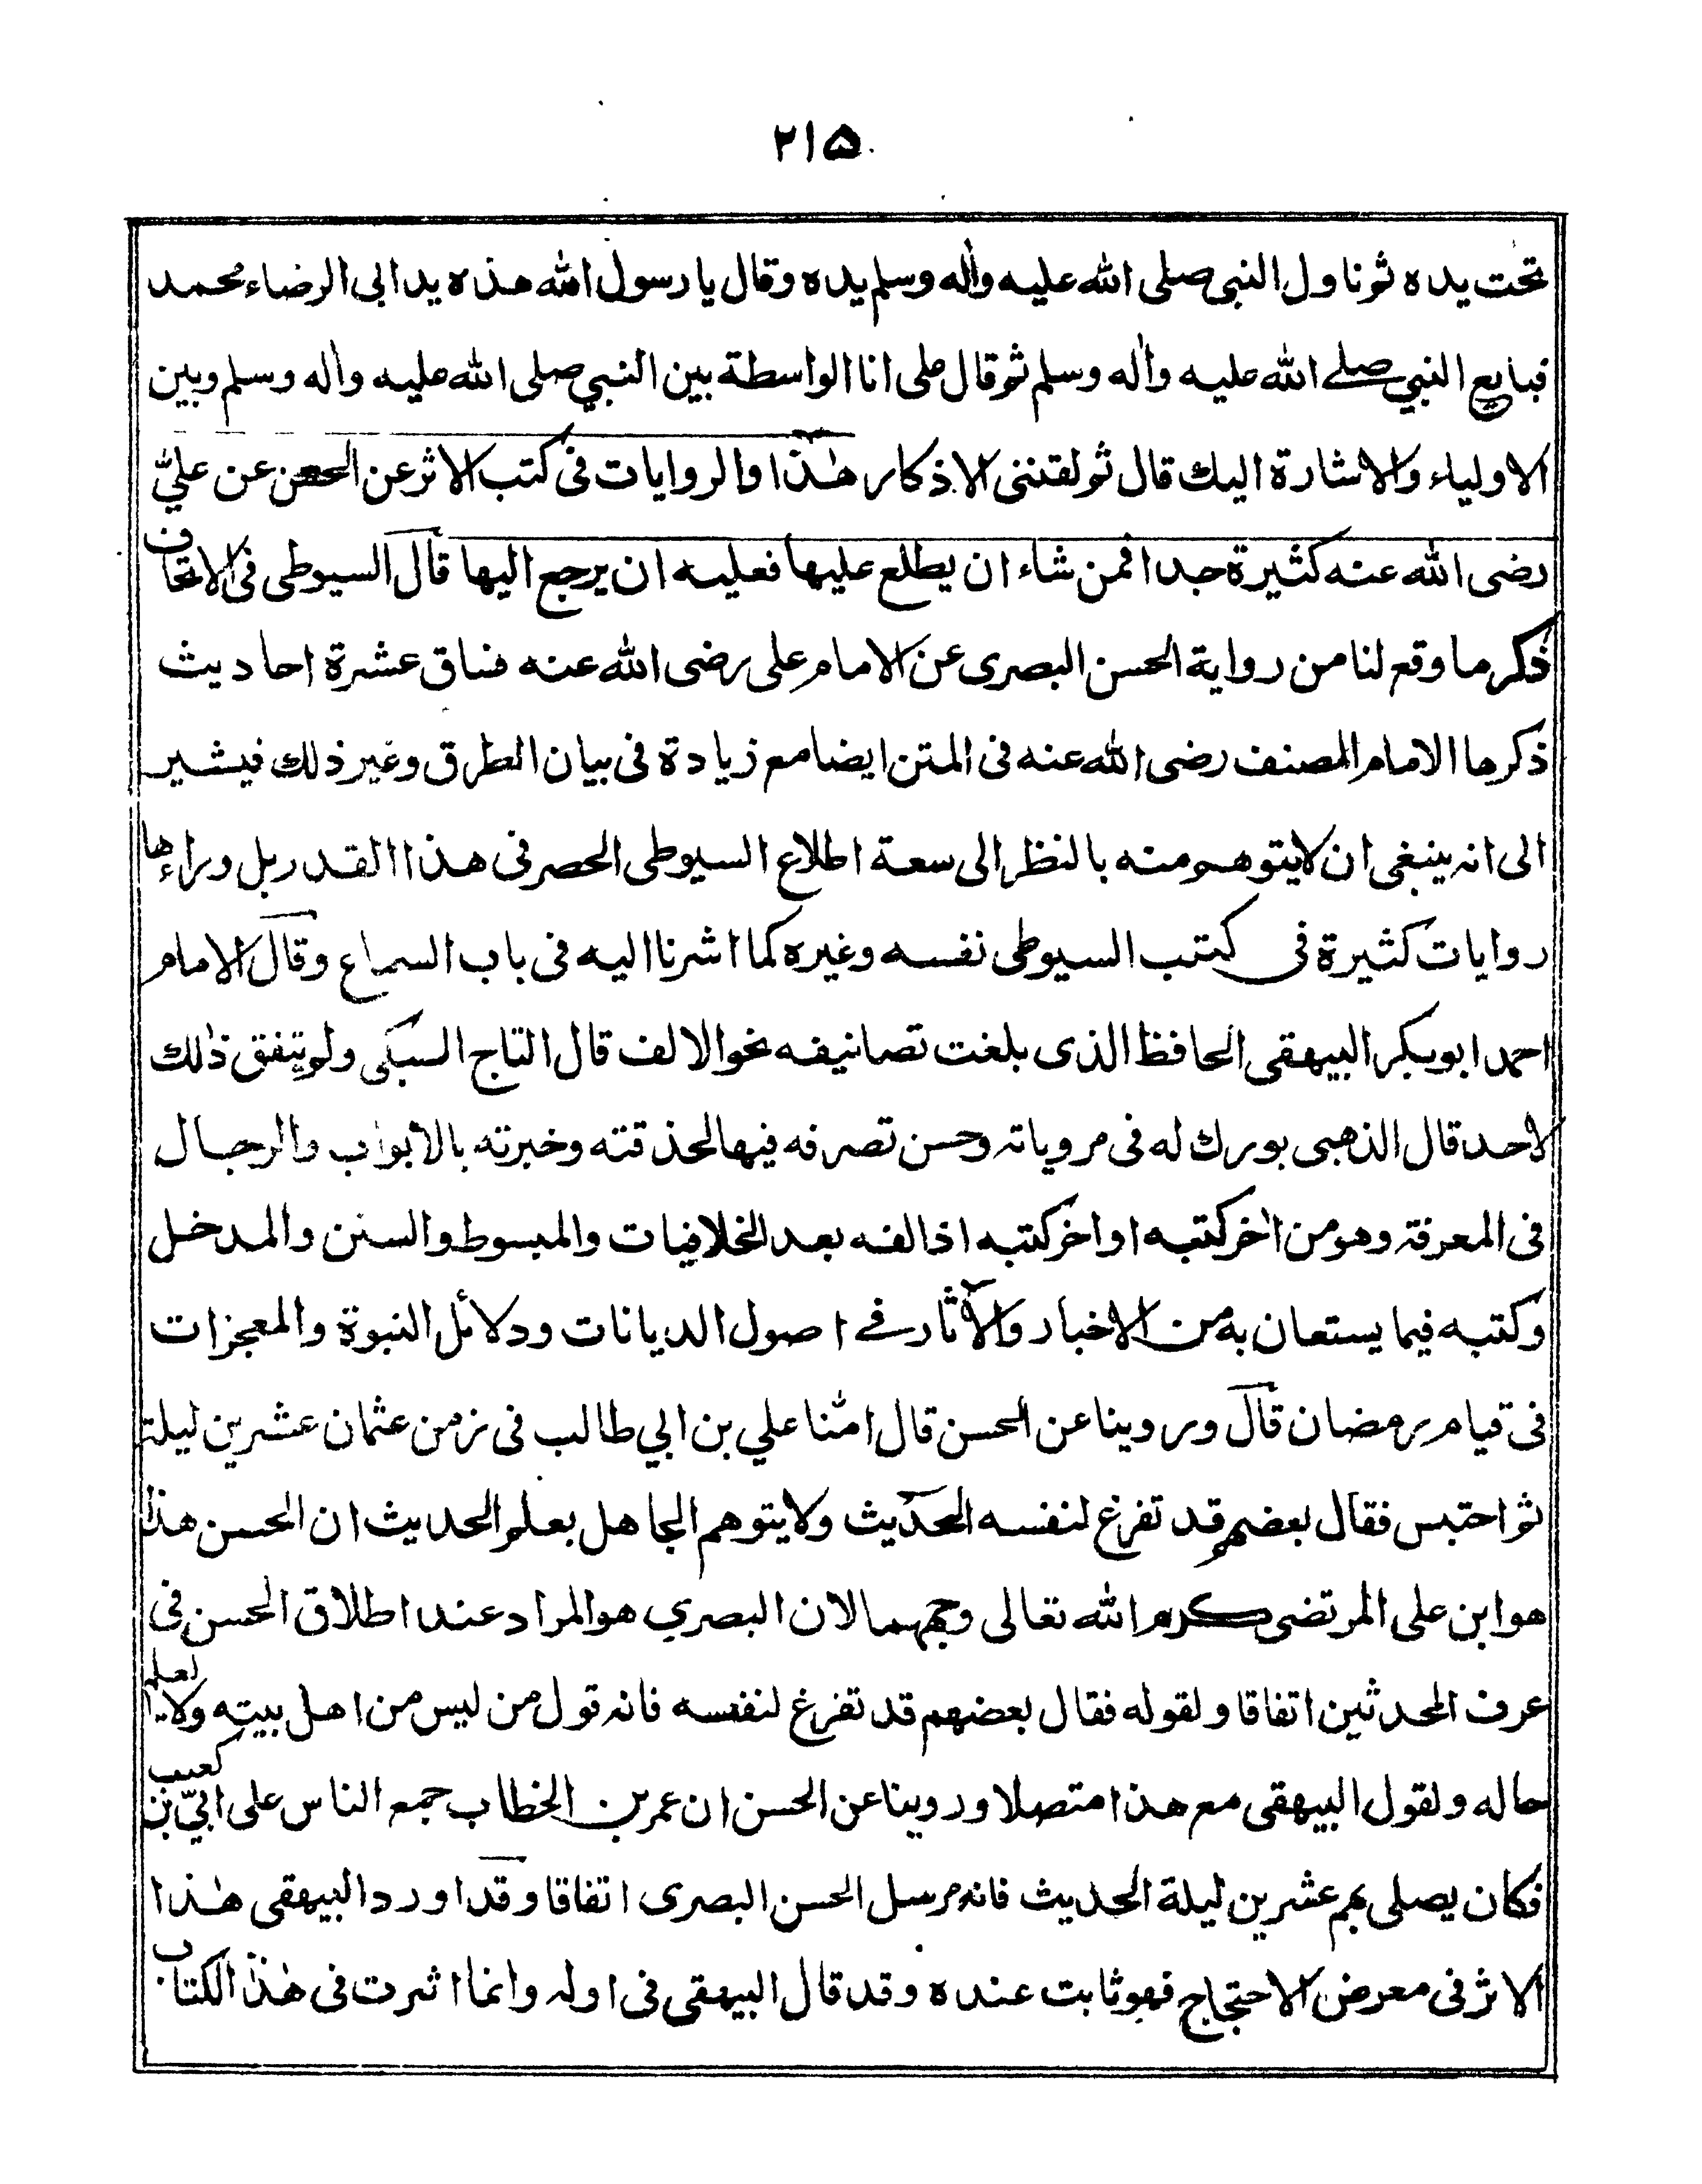 ۲۱۵
تحت يده ثم ناول النبي صلى الله عليه واٰله وسلم يده وقال يا رسول الله هذه يد ابى الرضاء محمد
فبايع النبي صلے الله عليه واٰله وسلم ثم قال على انا الواسطة بين النبي صلى الله عليه واله وسلم وبين
الاولياء والاشارة اليك قال ثم لقننى الاذكار هٰذا والروايات فى كتب الاثر عن الحسن عن علىّ
رضى الله عنه كثيرة جدا فمن شاء ان يطلع عليها فعليه ان يرجع اليها قال السيوطى فى الاتحاف
ذكر ما وقع لنا من رواية الحسن البصرى عن الامام على رضى الله عنه فساق عشرة احاديث
ذكرها الامام المصنف رضى الله عنه فى المتن ايضا مع زيادة فى بيان الطرق وغير ذلك فيشير
الى انه ينبغى ان لا يتوهم منه بالنظر الى سعة اطلاع السيوطى الحصر فى هذا القدر بل وراءها
روايات كثيرة فى كتب السيوطى نفسه وغيره كما اشرنا اليه فى باب السماع وقال الامام
احمد ابو بكر البيهقى الحافظ الذى بلغت تصانيفه نحو الالف قال التاج السبكى ولم يتفق ذٰلك
لاحد قال الذهبى بورك له فى مروياته وحسن تصرفه فيها لحذقته وخبرته بالابواب والرجال
فى المعرفة وهو من اٰخر كتبه او اخر كتبه اذ الفه بعد الخلافيات والمبسوط والسنن والمدخل
وكتبه فيما يستعان به من الاخبار والآثار فے اصول الديانات ودلائل النبوة والمعجزات
فى قيام رمضان قال وروينا عن الحسن قال امّنا علي بن ابي طالب فى زمن عثمان عشرين ليلة
ثم احتبس فقال بعضهم قد تفرغ لنفسه الحديث ولا يتوهم الجاهل بعلم الحديث ان الحسن هذا
هو ابن على المرتضى كرم الله تعالى وجههما لان البصري هو المراد عند اطلاق الحسن فى
عرف المحدثين اتفاقا ولقوله فقال بعضهم قد تفرغ لنفسه فانه قول من ليس من اهل بيته ولا يعلم
حاله ولقول البيهقى مع هذا متصلا وروينا عن الحسن ان عمر بن الخطاب جمع الناس على ابيّ بن كعب
فكان يصلى بهم عشرين ليلة الحديث فانه مرسل الحسن البصرى اتفاقا وقد اورد البيهقى هٰذا
الاثر فى معرض الاحتجاج فهو ثابت عنده وقد قال البيهقى فى اوله وانما اثرت فى هٰذا الكتاب